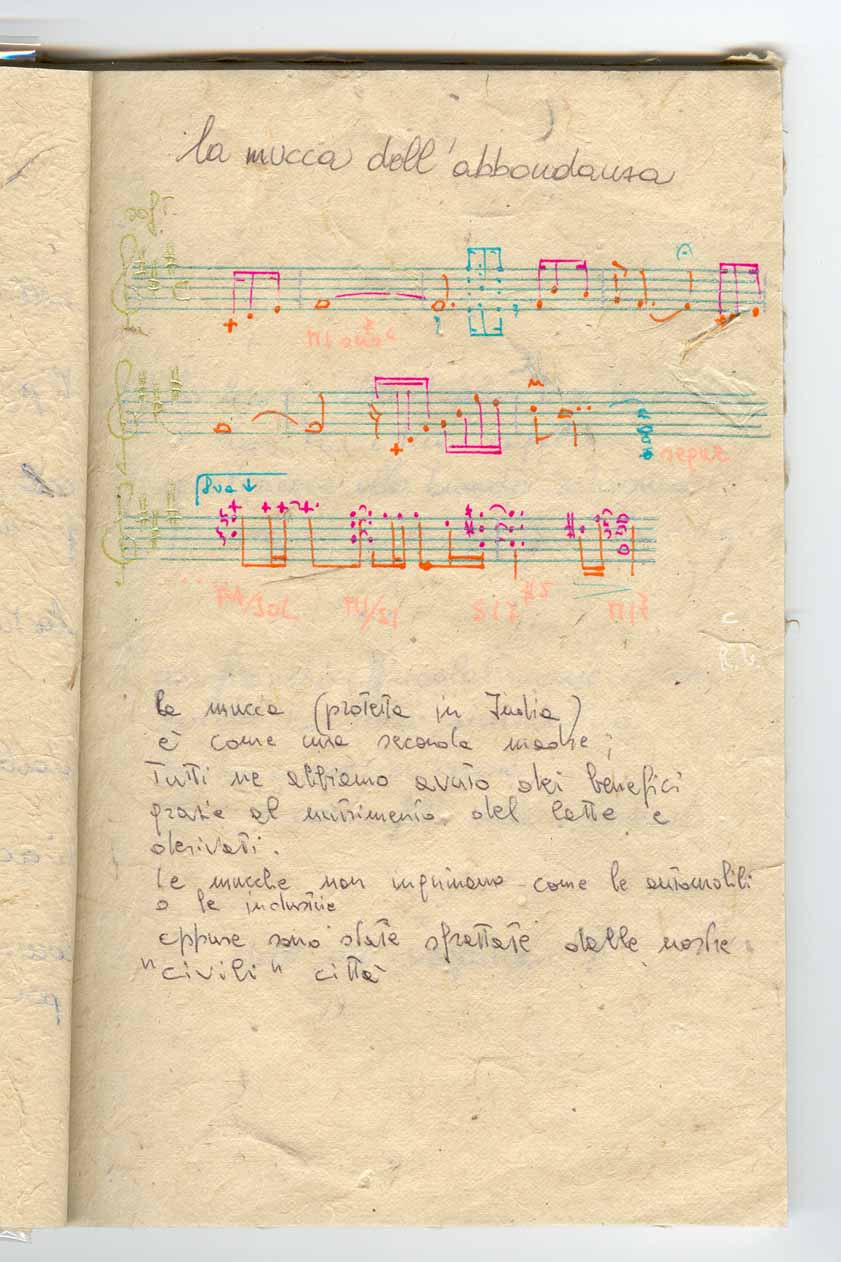 la mucca dell'abbondanza
soft.
8va ↓
repeat
FA/SOL MI/SI SI7 MI7
La mucca (protetta in India)
è come una seconda madre;
Tutti ne abbiamo avuto dei benefici
grazie al nutrimento del latte e
derivati.
Le mucche non inquinano come le automobili
o le industrie
eppure sono state sfrattate dalle nostre
"civili" città